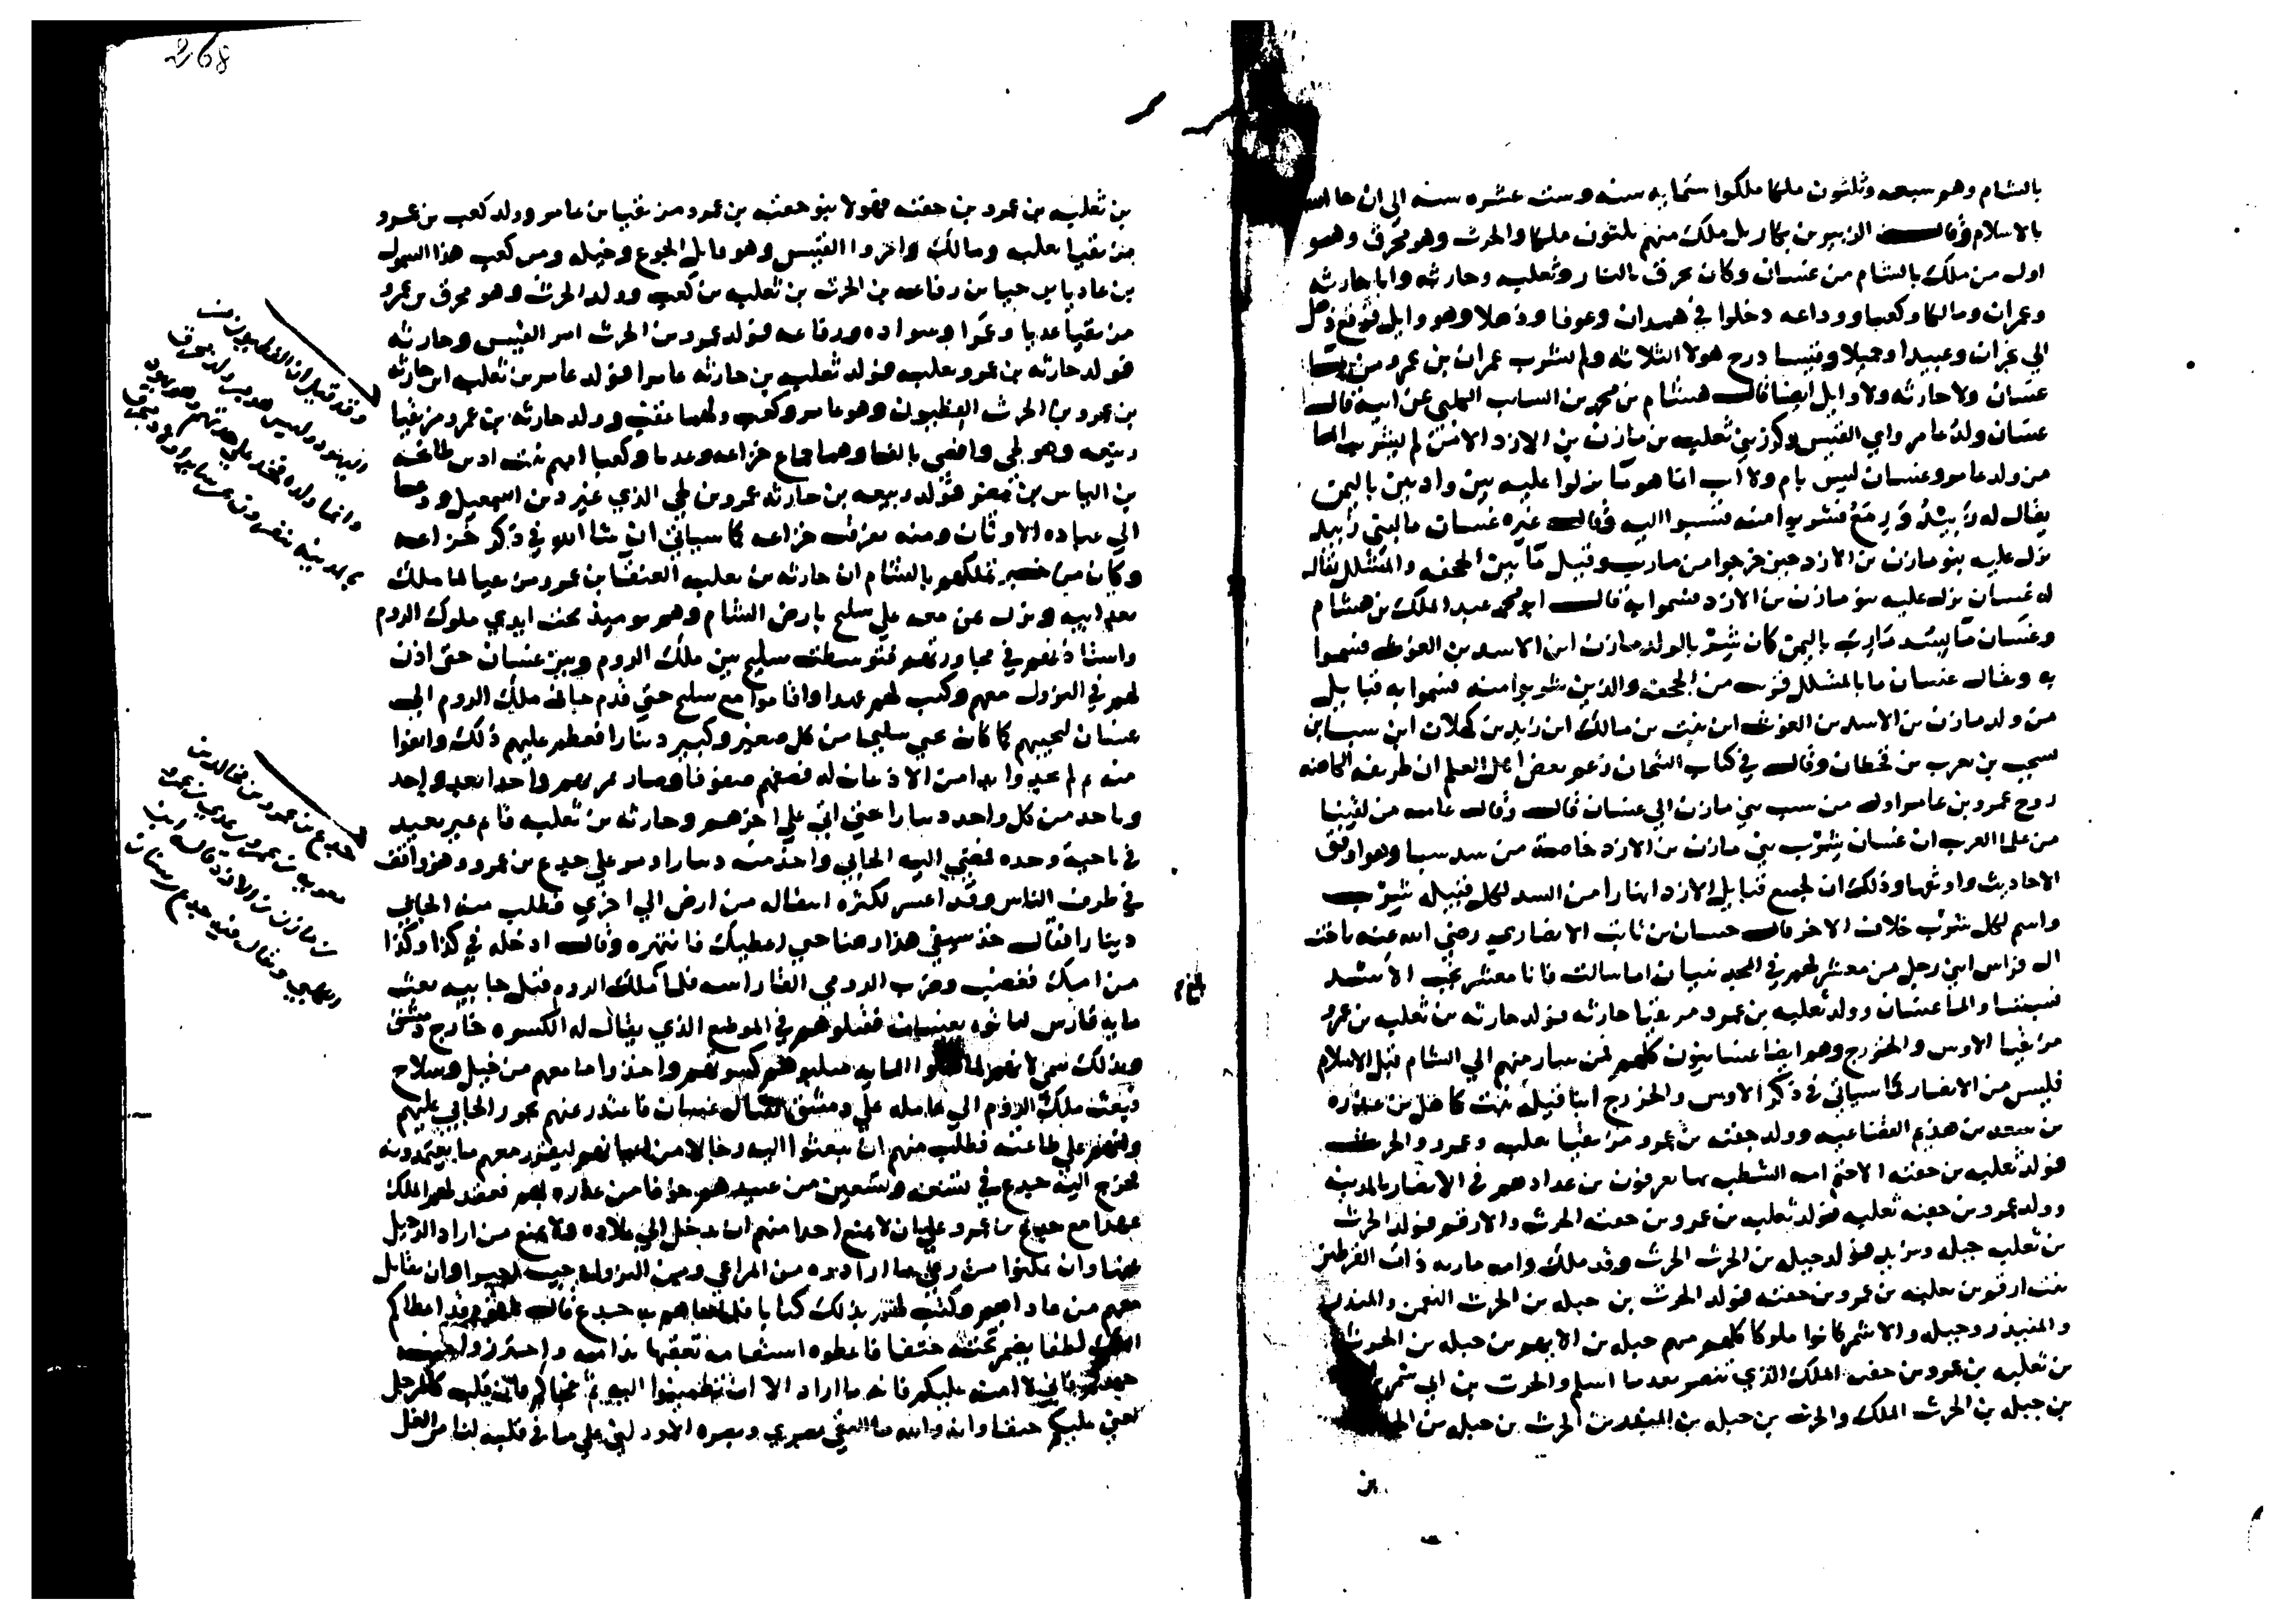 بالشام وهو سبعه وثلثون ملكا ملكوا ستمايه سنه وست عشره سنه الى ان جا الله
بالاسلام وقال الزبير بن بكار بل ملك منهم ثلثون ملكا والحرث وهو محرق وهو
اول من ملك بالشام من غسان وكان يحرق بالنار وثعلبه وحارثه وابا حارثه
وعمران ومالكا وكعبا ووداعه دخلوا في همدان وعوفا وذهلا وهو وايل فوقع ذهل
الي نجران وعبيدا وقيسا درج هولا الثلاثه ولم يشرب عمران بن عمرو من
غسان ولا حارثه ولا وايل ايضا قال هشام بن محمد بن السايب الكلبي عن ابيه قال
غسان ولد عامر وامرى القيس وكرز بني ثعلبه بن مازن بن الازد الا من لم يشرب الما
من ولد عامر وغسان ليس بام ولا اب انما هو ما نزلوا عليه بين واديين باليمن
يقال له زبيد ورمع فشربوا منه فنسبوا اليه وقال غيره غسان ما لبني زبيد
نزل عليه بنو مازن بن الازد حين خرجوا من مارب وقيل ما بين الجحفه والمشلل يقال
له غسان نزل عليه بنو مازن بن الازد فسموا به قال ابو محمد عبد الملك بن هشام
وغسان ما بسد مارب باليمن كان شربا لولد مازن ابن الاسد بن الغوث فسموا
به ويقال غسان ما بالمشلل قرب من الجحفه والذين شربوا منه فسموا به قبايل
من ولد مازن بن الاسد بن الغوث ابن نبت بن مالك ابن زيد بن كهلان ابن سبا بن
يشجب بن يعرب بن قحطان وقال في كتاب التيجان زعم بعض اهل العلم ان طريفه الكاهنه
زوج عمرو بن عامر اول من نسب بني مازن الي غسان قال وقال عامه من لقينا
من علما العرب ان غسان شرب بني مازن بن الازد خاصه من سد سبا وهو اوفق
الاحاديث واوثقها وذلك ان لجميع قبايل الازد انهارا من السد لكل قبيله شرب
واسم لكل شرب خلاف الاخر قال حسان بن ثابت الانصاري رضي الله عنه ياخت
ال فراس انني رجل من معشر لهم في المجد بنيان اما سالت فانا معشر نجب الاسد
نسبتنا والما غسان وولد ثعلبه بن عمرو مزيقيا حارثه فولد حارثه بن ثعلبه بن عمرو
مزيقيا الاوس والخزرج وهو ايضا غسانيون كلهم فمن سار منهم الي الشام قبل الاسلام
فليس من الانصار كما سياتي في ذكر الاوس والخزرج ابنا قيله بنت كاهل بن عذره
بن سعد بن هذيم القضاعيه وولد جفنه بن عمرو مزيقيا ثعلبه وعمرو والحرث
فولد ثعلبه بن جفنه الاختم امه الشطبه بها يعرفون من عدادهم في الانصار بالمدينه
وولد عمرو بن جفنه ثعلبه فولد ثعلبه بن عمرو بن جفنه الحرث والارقم فولد الحرث
بن ثعلبه جبله ويزيد فولد جبله بن الحرث الحرث وقد ملك وامه ماريه ذات القرطين
بنت ارقم بن ثعلبه بن عمرو بن جفنه فولد الحرث بن جبله بن الحرث النعمن والمنذر
والمنيذر وجبله والاشمر كانوا ملوكا كلهم منهم جبله بن الايهم بن جبله بن الحرث
بن ثعلبه بن عمرو بن جفنه الملك الذي تنصر بعدما اسلم والحرث بن ابي شمر
بن جبله بن الحرث الملك والحرث بن جبله بن المنذر بن الحرث بن جبله بن
بن
268
بن ثعلبه بن عمرو بن جفنه فهولا بنو جفنه بن عمرو مزيقيا بن عامر وولد كعب بن عمرو
مزيقيا ثعلبه ومالك وامروا القيس وهو قاتل الجوع وجبله ومن كعب هذا السموال
بن عاديا بن حيا بن رفاعه بن الحرث بن ثعلبه بن كعب وولد الحرث وهو محرق بن عمرو
مزيقيا عديا وعمرا وسواده ورفاعه فولد عمرو بن الحرث امر القيس وحارثه
فولد حارثه بن عمرو ثعلبه فولد ثعلبه بن حارثه عامرا فولد عامر بن ثعلبه ابن حارثه
بن عمرو بن الحرث الفطيون وهو عامر وكعب ولهما عقب وولد حارثه بن عمرو مزيقيا
ربيعه وهو لحي وافصى بالفا وهما جماع خزاعه وعديا وكعبا امهم بنت اد بن طابخه
بن الياس بن مضر فولد ربيعه بن حارثه عمرو بن لحي الذي غير دين اسمعيل ودعا
الي عباده الاوثان ومنه تفرقت خزاعه كما سياتي ان شا الله في ذكر خزاعه
وكان من خبر تملكهم بالشام ان حارثه بن ثعلبه العنقا بن عمرو مزيقيا لما ملك
بعد ابيه ونزل عن معه علي سليح بارض الشام وهم يوميذ تحت ايدي ملوك الروم
واستاذنهم في مجاورتهم فتوسطت سليح بين ملك الروم وبين غسان حتى اذن
لهم في النزول معهم وكتب لهم عهدا واقاموا مع سليح حتي قدم جابي ملك الروم الي
غسان ليجبيهم كما كان يجبي سليحا من كل صغير وكبير دينارا فعظم عليهم ذلك وانفوا
منه ثم لم يجدوا بدا من الاذعان له فصفهم صفوفا وصار يمر بهم واحدا بعد واحد
وياخذ من كل واحد دينارا حتي اتى علي اخرهم وحارثه بن ثعلبه قايم غير بعيد
في ناحيه وحده فمضى اليه الجابي واخذ منه دينارا ومر علي جذع بن عمرو وهو واقف
في طرف الناس وقد اعسر لكثره انتقاله من ارض الي اخري فطلب منه الجابي
دينارا فقال خذ سيفي هذا رهنا حتي اعطيك فانتهره وقال ادخله في كذا وكذا
من امك فغضب وضرب الرومي فلما ملك الروم قتل جابيه بعث
مايه فارس فقتلوهم في الموضع الذي يقال له الكسوه خارج دمشق
وبذلك سمي لانهم سلبوهم كسوتهم واخذوا ما معهم من خيل وسلاح
فبعث ملك الروم الي عامله علي دمشق غسان فاعتذر عنهم بجور الجابي عليهم
علي طاعته فطلب منهم ان يبعثوا اليه رجالا من اعيانهم ليقرر معهم ما يعتمدونه
فخرج اليه جذع في تسعه وتسعين من عبيدهم خوفا من غدره بهم فعقد لهم الملك
عهدا مع جذع بن عمرو علي ان لا يمنع احدا منهم ان يدخل الي بلاده ولا يمنع من اراد الرحيل
عنها وان يمكنوا من رعي ما ارادوه من المراعي ومن النزول حيث احبوا وان يقاتل
معهم من عاداهم وكتب لهم بذلك كتابا فلما جاهم به جذع قال لهم قد اعطاكم
لطفا يضمر تحته حتفا فاعطوه استقامه تعقبها ندامه واحترزوا
جهدكم فاني لا امنه عليكم فانه ما اراد الا ان تطمينوا اليه ثم فاتى قلب كل رجل
عليكم حنقا وانه والله ما التقى بصري وبصره الا ودلني علي ما في قلبه لنا من الغل
وقد قيل ان الفطيون من
يهود وليس
وانما ولده فخذ علي حدتهم
بالمدينه
جذع بن عمرو بن
بن عمرو بن عدي بن عمرو
بن مازن بن الازد قاله
ويقال فيه جذع بن سنان
بلغ